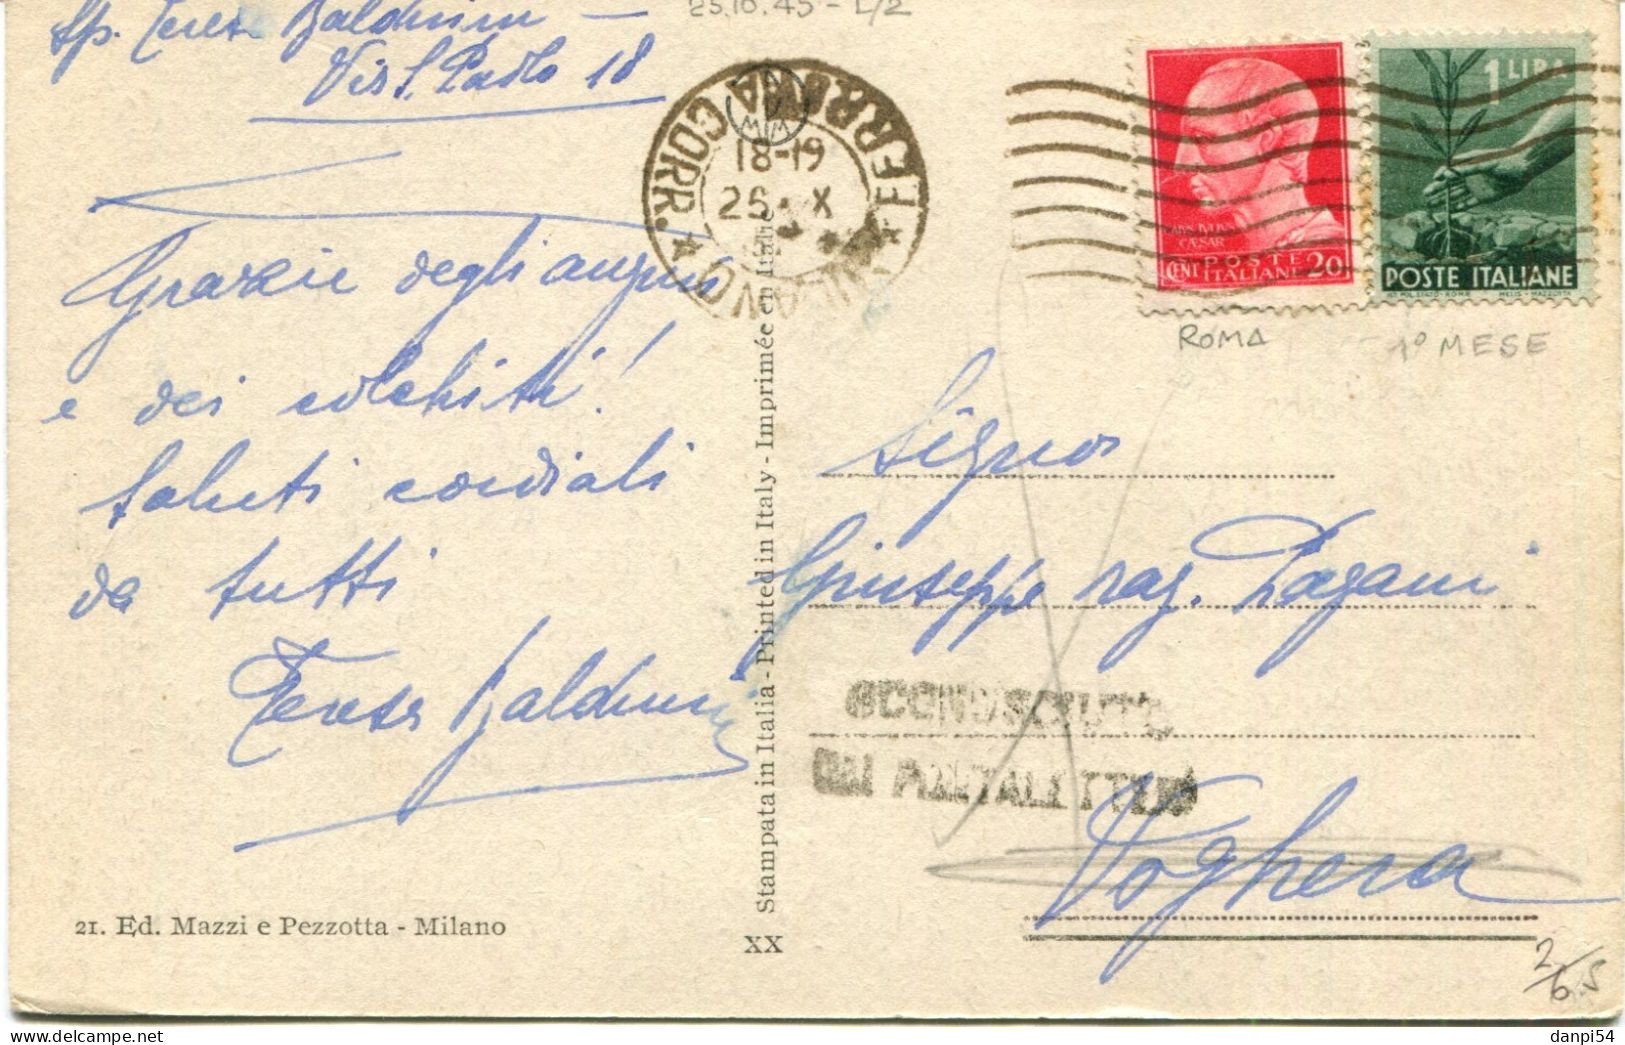 Sp. Teresa Balduini -
Via S. Paolo 18
25.10.45 - L/2
MILANO FERROVIA CORR.
18-19
25 X
1 LIRA
CAESAR
POSTE
CENT ITALIANE 20
POSTE ITALIANE
IST. POL. STATO - ROMA MELIS - MAZZOTTA
ROMA
1° MESE
Grazie degli auguri
e dei colchiti!
Saluti cordiali
da tutti
Teresa Balduini
21. Ed. Mazzi e Pezzotta - Milano
Stampata in Italia - Printed in Italy - Imprimée en Italie
XX
Signor
Giuseppe rag. Pagani
SCONOSCIUTO
AI PORTALETTERE
Voghera
2/6.5
danpi54